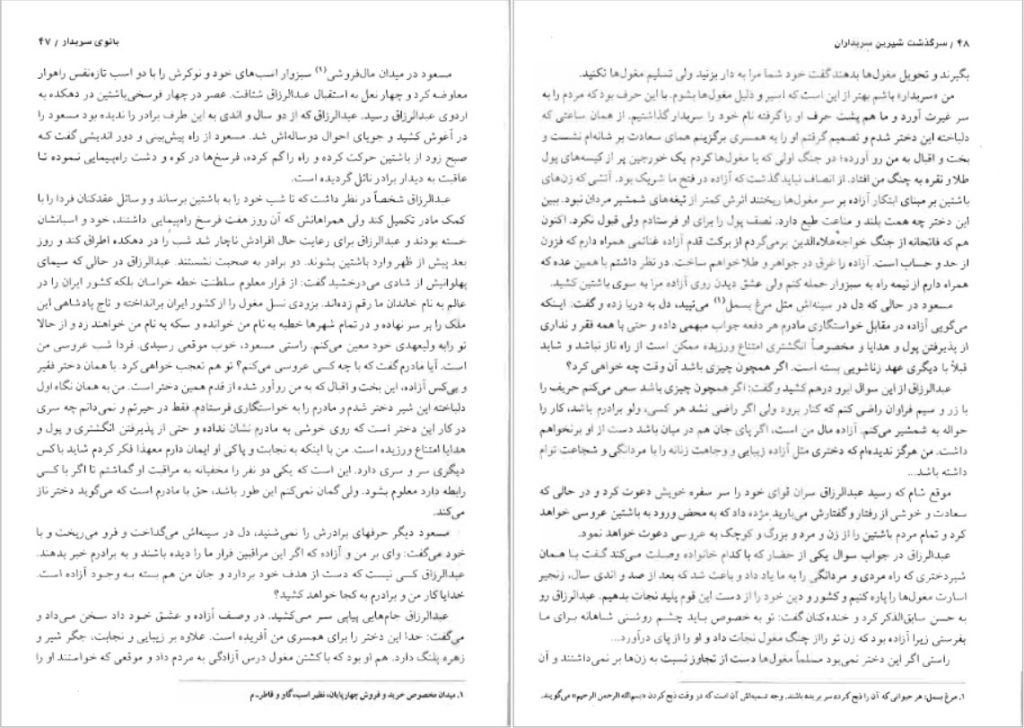 بانوی سربدار / ۴۷
مسعود در میدان مال‌فروشی(۱) سبزوار اسب‌های خود و نوکرش را با دو اسب تازه‌نفس راهوار
معاوضه کرد و چهار نعل به استقبال عبدالرزاق شتافت. عصر در چهار فرسخی‌باشتین در دهکده به
اردوی عبدالرزاق رسید. عبدالرزاق که از دو سال و اندی به این طرف برادر را ندیده بود مسعود را
در آغوش کشید و جویای احوال دوساله‌اش شد. مسعود از راه پیش‌بینی و دور اندیشی گفت که
صبح زود از باشتین حرکت کرده و راه را گم کرده، فرسخ‌ها در کوه و دشت راه‌پیمایی نموده تا
عاقبت به دیدار برادر نائل گردیده است.
عبدالرزاق شخصاً در نظر داشت که تا شب خود را به باشتین برساند و وسائل عقدکنان فردا را با
کمک مادر تکمیل کند ولی همراهانش که آن روز هفت فرسخ راه‌پیمایی داشتند، خود و اسبانشان
خسته بودند و عبدالرزاق برای رعایت حال افرادش ناچار شد شب را در دهکده اطراق کند و روز
بعد پیش از ظهر وارد باشتین بشوند. دو برادر به صحبت نشستند. عبدالرزاق در حالی که سیمای
پهلوانیش از شادی می‌درخشید گفت: از قرار معلوم سلطنت خطه خراسان بلکه کشور ایران را در
عالم به نام خاندان ما رقم زده‌اند. بزودی نسل مغول را از کشور ایران برانداخته و تاج پادشاهی این
ملک را بر سر نهاده و در تمام شهرها خطبه به نام من خوانده و سکه به نام من خواهند زد و از حالا
تو را به ولیعهدی خود معین می‌کنم. راستی مسعود، خوب موقعی رسیدی. فردا شب عروسی من
است. آیا مادرم گفت که با چه کسی عروسی می‌کنم؟ تو هم تعجب خواهی کرد. با همان دختر فقیر
و بی‌کس آزاده، این بخت و اقبال که به من روآور شده از قدم همین دختر است. من به همان نگاه اول
دلباخته این شیر دختر شدم و مادرم را به خواستگاری فرستادم. فقط در حیرتم و نمی‌دانم چه سری
در کار این دختر است که روی خوشی به مادرم نشان نداده و حتی از پذیرفتن انگشتری و پول و
هدایا امتناع ورزیده است. من با اینکه به نجابت و پاکی او ایمان دارم معهذا فکر کردم شاید با کس
دیگری سر و سری دارد. این است که یکی دو نفر را مخفیانه به مراقبت او گماشتم تا اگر با کسی
رابطه دارد معلوم بشود. ولی گمان نمی‌کنم این طور باشد، حق با مادرم است که می‌گوید دختر ناز
می‌کند.
مسعود دیگر حرفهای برادرش را نمی‌شنید، دل در سینه‌اش می‌گداخت و فرو می‌ریخت و با
خود می‌گفت: وای بر من و آزاده که اگر این مراقبین فرار ما را دیده باشند و به برادرم خبر بدهند.
عبدالرزاق کسی نیست که دست از هدف خود بردارد و جان من هم بسته به وجود آزاده است.
خدایا کار من و برادرم به کجا خواهد کشید؟
عبدالرزاق جام‌هایی پیاپی سر می‌کشید. در وصف آزاده و عشق خود داد سخن می‌داد و
می‌گفت: خدا این دختر را برای همسری من آفریده است. علاوه بر زیبایی و نجابت، جگر شیر و
زهره پلنگ دارد. هم او بود که با کشتن مغول درس آزادگی به مردم داد و موقعی که خواستند او را
۱. میدان مخصوص خرید و فروش چهارپایان، نظیر اسب، گاو و قاطر. م
۴۸ / سرگذشت شیرین سربداران
بگیرند و تحویل مغول‌ها بدهند گفت خود شما مرا به دار بزنید ولی تسلیم مغول‌ها نکنید.
من «سربدار» باشم بهتر از این است که اسیر و ذلیل مغول‌ها بشوم. با این حرف بود که مردم را به
سر غیرت آورد و ما هم پشت حرف او را گرفته نام خود را سربدار گذاشتیم. از همان ساعتی که
دلباخته این دختر شدم و تصمیم گرفتم او را به همسری برگزینم همای سعادت بر شانه‌ام نشست و
بخت و اقبال به من رو آورده؛ در جنگ اولی که با مغول‌ها کردم یک خورجین پر از کیسه‌های پول
طلا و نقره به چنگ من افتاد. از انصاف نباید گذشت که آزاده در فتح ما شریک بود. آتشی که زن‌های
باشتین بر مبنای ابتکار آزاده بر سر مغول‌ها ریختند اثرش کمتر از تیغه‌های شمشیر مردان نبود. ببین
این دختر چه همت بلند و مناعت طبع دارد. نصف پول را برای او فرستادم ولی قبول نکرد. اکنون
هم که فاتحانه از جنگ خواجه علاءالدین برمی‌گردم از برکت قدم آزاده غنائمی همراه دارم که فزون
از حد و حساب است. آزاده را غرق در جواهر و طلا خواهم ساخت. در نظر داشتم با همین عده که
همراه دارم از نیمه راه به سبزوار حمله کنم ولی عشق دیدن روی آزاده مرا به سوی باشتین کشید.
مسعود در حالی که دل در سینه‌اش مثل مرغ بسمل(۱) می‌تپید، دل به دریا زده و گفت: اینکه
می‌گویی آزاده در مقابل خواستگاری مادرم هر دفعه جواب مبهمی داده و حتی با همه فقر و نداری
از پذیرفتن پول و هدایا و مخصوصاً انگشتری امتناع ورزیده ممکن است از راه ناز نباشد و شاید
قبلاً با دیگری عهد زناشویی بسته است. اگر همچون چیزی باشد آن وقت چه خواهی کرد؟
عبدالرزاق از این سوال ابرو درهم کشید و گفت: اگر همچون چیزی باشد سعی می‌کنم حریف را
با زر و سیم فراوان راضی کنم که کنار برود ولی اگر راضی نشد هر کسی، ولو برادرم باشد، کار را
حواله به شمشیر می‌کنم. آزاده مال من است، اگر پای جان هم در میان باشد دست از او برنخواهم
داشت. من هرگز ندیده‌ام که دختری مثل آزاده زیبایی و وجاهت زنانه را با مردانگی و شجاعت توام
داشته باشد...
موقع شام که رسید عبدالرزاق سران قوای خود را سر سفره خویش دعوت کرد و در حالی که
سعادت و خوشی از رفتار و گفتارش می‌بارید مژده داد که به محض ورود به باشتین عروسی خواهد
کرد و تمام مردم باشتین را از زن و مرد و بزرگ و کوچک به عروسی دعوت خواهد نمود.
عبدالرزاق در جواب سوال یکی از حضار که با کدام خانواده وصلت می‌کند گفت با همان
شیردختری که راه مردی و مردانگی را به ما یاد داد و باعث شد که بعد از صد و اندی سال، زنجیر
اسارت مغول‌ها را پاره کنیم و کشور و دین خود را از دست این قوم پلید نجات بدهیم. عبدالرزاق رو
به حسن سابق‌الذکر کرد و خنده‌کنان گفت: تو به خصوص باید چشم روشنی شاهانه برای ما
بفرستی زیرا آزاده بود که زن تو را از چنگ مغول نجات داد و او را از پای درآورد...
راستی اگر این دختر نمی‌بود مسلماً مغول‌ها دست از تجاوز نسبت به زن‌ها بر نمی‌داشتند و آن
۱. مرغ بسمل: هر حیوانی که آن را ذبح کرده سر بریده باشند. وجه تسمیه‌اش آن است که در وقت ذبح کردن «بسم‌الله الرحمن الرحیم» می‌گویند.